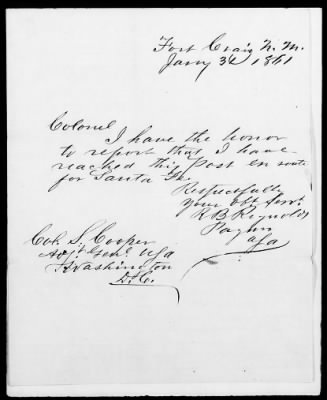 Fort Craig N. M.
Jany 3d 1861
Colonel
I have the honor
to report that I have
reached this Post en route
for Santa Fe.
Respectfully
your obt servt
R B Reynolds
Paymr
USA
Col. S. Cooper
Adjt Genl USA
Washington
D. C.